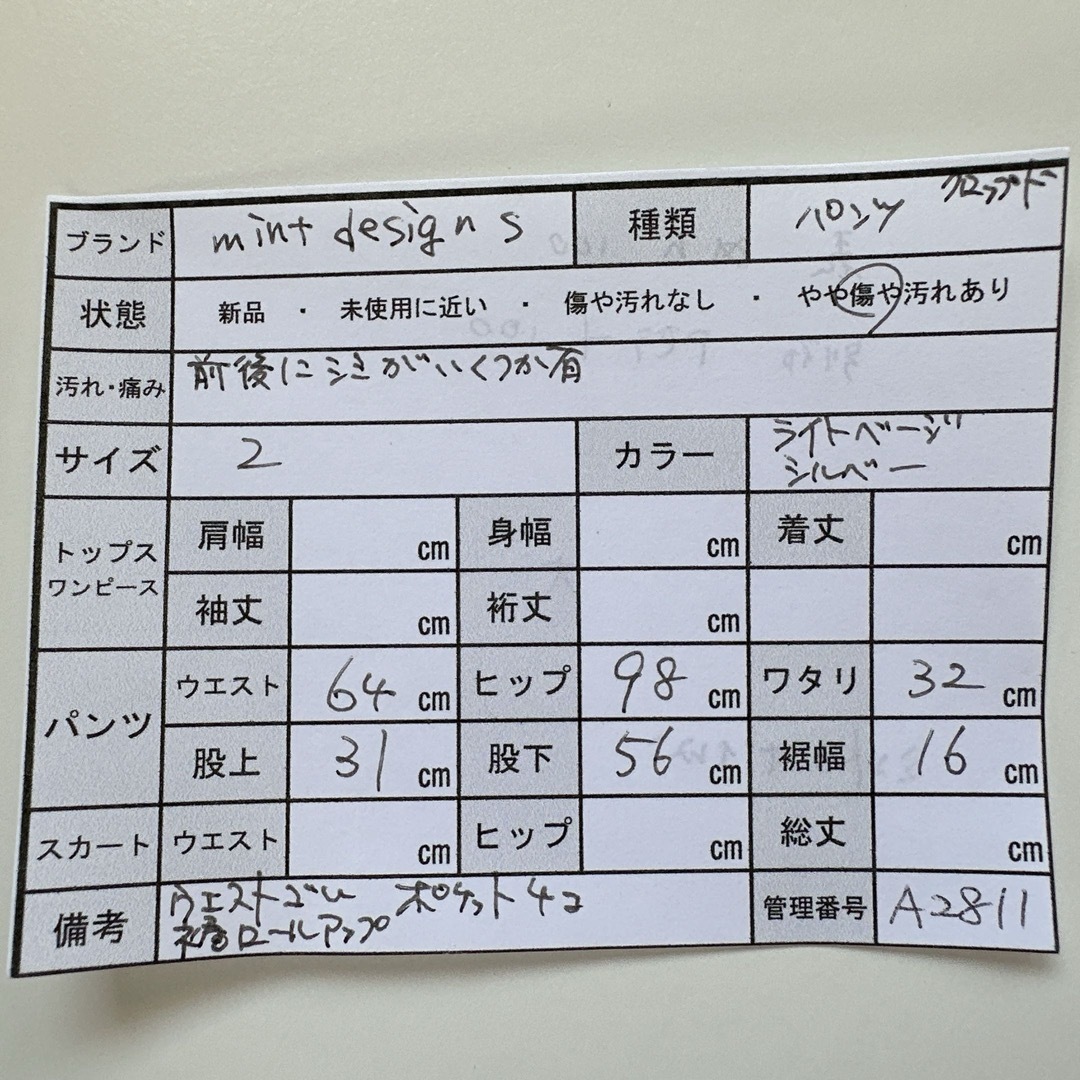 ブランド mint designs 種類 パンツ クロップド
状態 新品 ・ 未使用に近い ・ 傷や汚れなし ・ やや傷や汚れあり
汚れ・痛み 前後にシミがいくつか有
サイズ 2 カラー ライトベージ
シルベー
トップス ワンピース 肩幅 cm 身幅 cm 着丈 cm
袖丈 cm 裄丈 cm
パンツ ウエスト 64 cm ヒップ 98 cm ワタリ 32 cm
股上 31 cm 股下 56 cm 裾幅 16 cm
スカート ウエスト cm ヒップ cm 総丈 cm
備考 ウエストゴム ポケット4コ 管理番号 A2811
裾ロールアップ